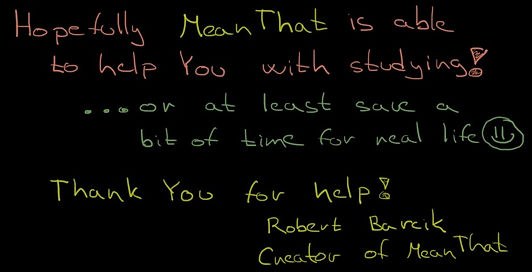 Hopefully MeanThat is able
to help You with studying!
....or at least save a
bit of time for real life
Thank You for help!
Robert Barcik
Creator of MeanThat